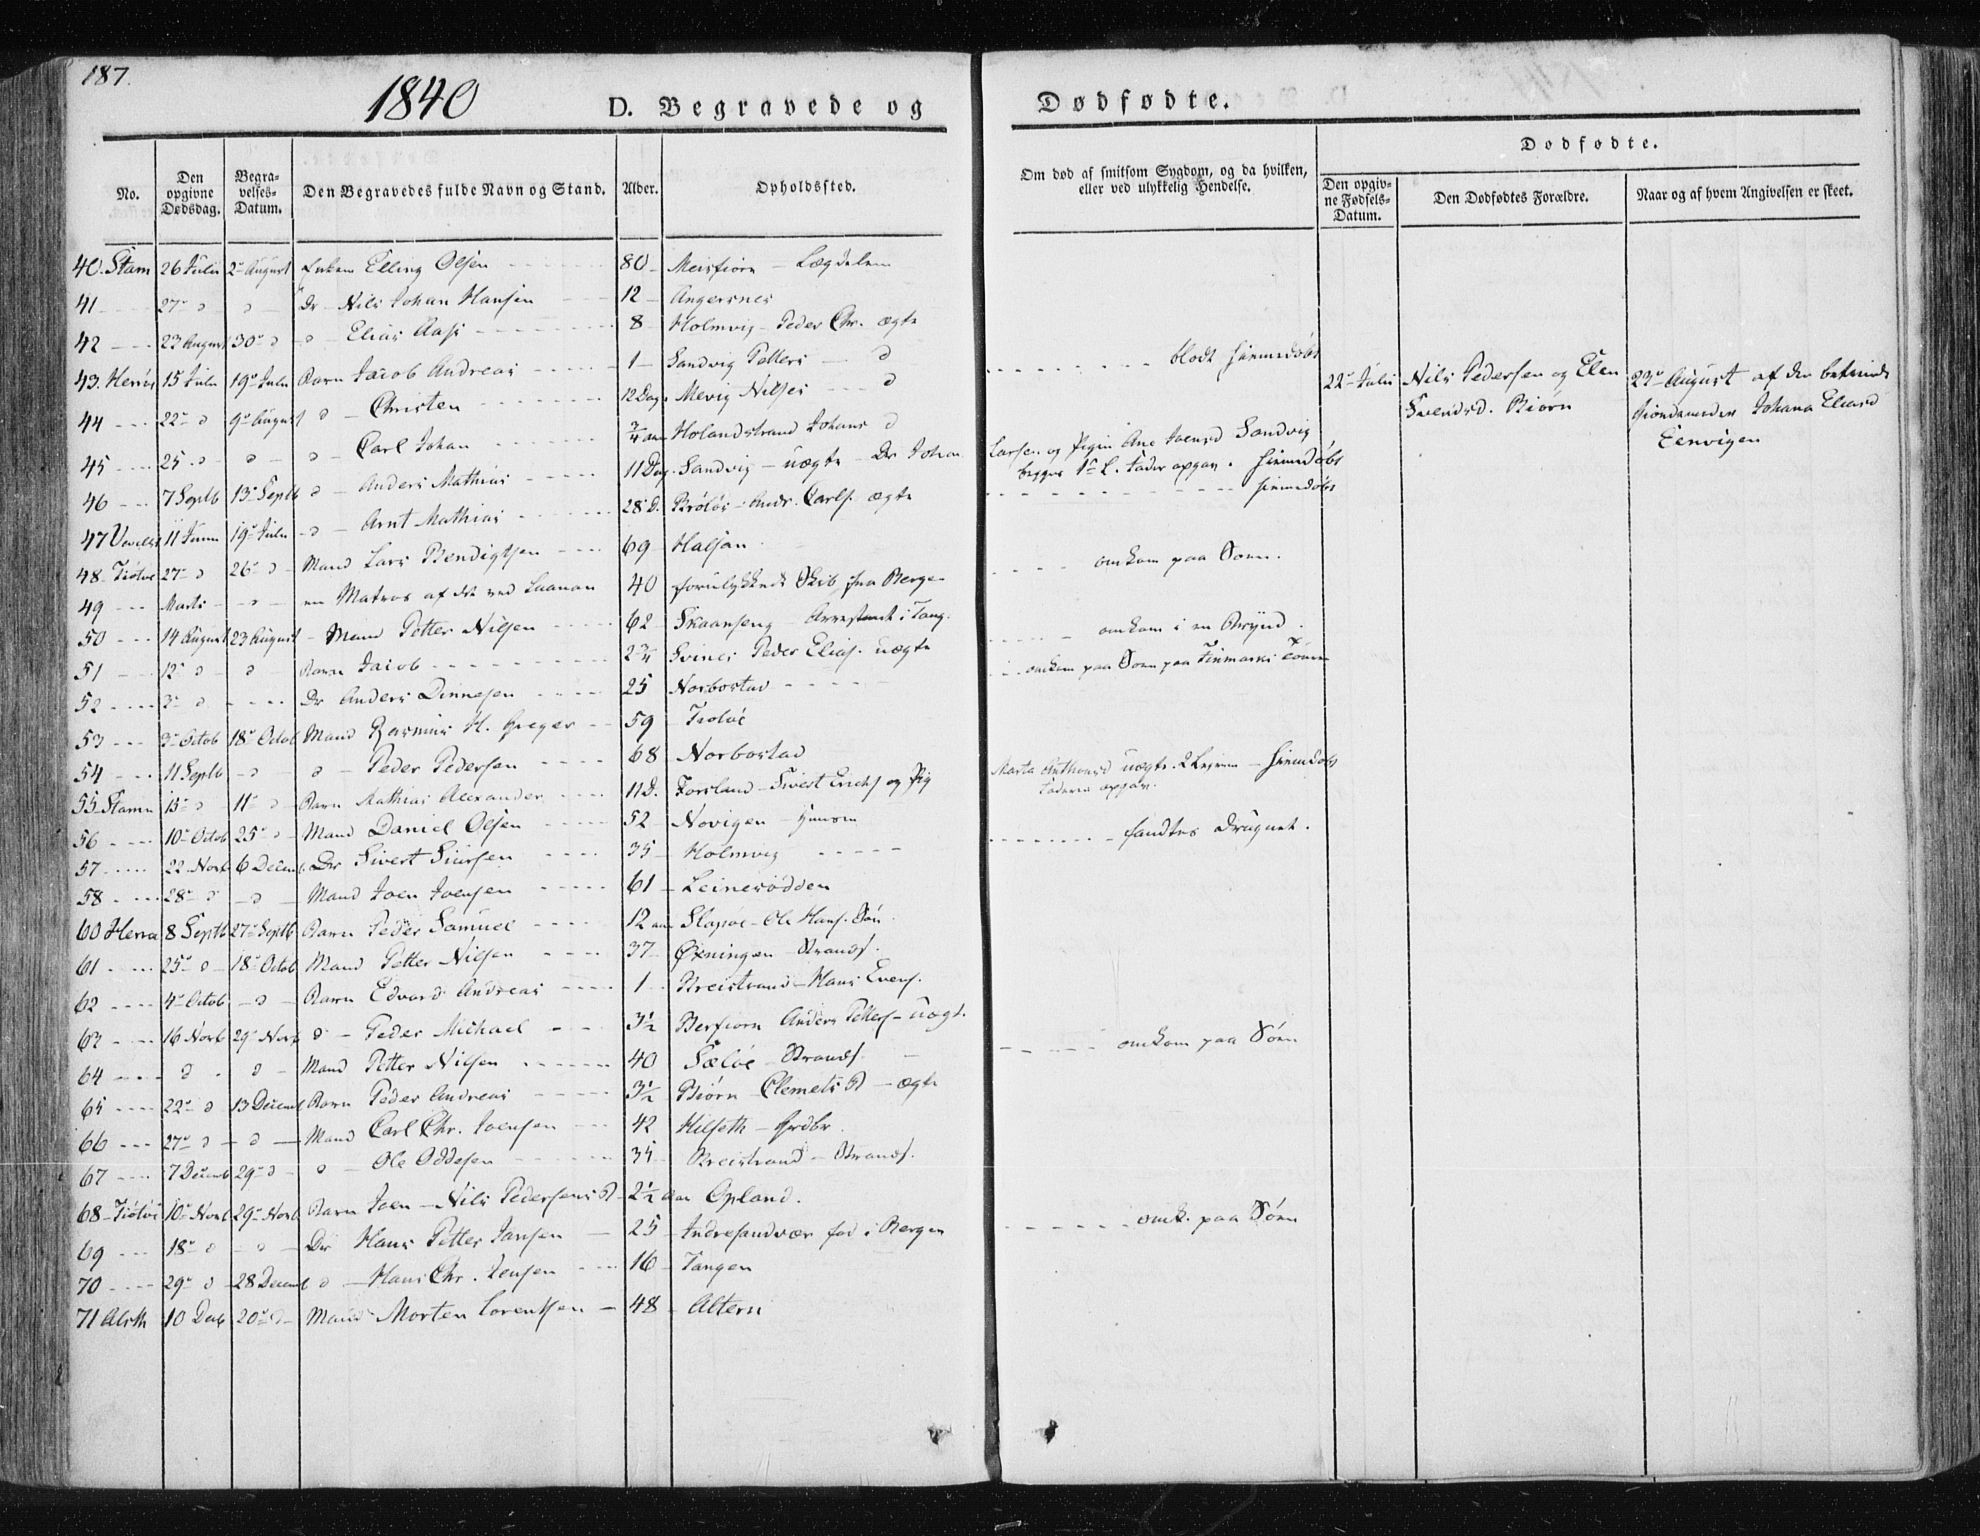 187.
1840
D. Begravede og
Dødfødte.
No.
Den opgivne Dødsdag.
Begravelses-Datum.
Den Begravedes fulde Navn og Stand.
Alder.
Opholdssted.
Om død af smitsom Sygdom, og da hvilken, eller ved ulykkelig Hendelse.
Dødfødte.
Den opgivne Fødsels-Datum.
Den Dødfødtes Forældre.
Naar og af hvem Angivelsen er skeet.
40. Stam 26 Julii 2 August Enkem Elling Olsen 80 Meisfiorn - Lægdslem
41 27 d d Dr Nils Johan Hansen 12 Angersnes
42 23 August 30 d d Elias Aas 8 Holmvig - Peder Chr. ægte
43. Herrøe 15 Julii 19 Julii Barn Jacob Andreas 1 Sandvig Petters d blodt hiemmedøbt
22 Julii Nils Pedersen og Elen Svendsd. Biørn
23 August af den Johana Eliasd
44 22 d 9 August d Christen 12 Dag Mevig Nilses d
45 25 d d d Carl Johan 3/4 aar Holandstrand Johans d
46 7 Septb 13 Septb d Anders Mathias 11 Dag Sandvig - uægte - Dr Johan Larsen og Pigen Ane Joensd Sandvig begges 1 L. Fader opgav. hiemmedøbt
47 11 Junii 19 Julii d Arnt Mathias 28 D. Brøløs Andr. Carls. ægte hiemmedøbt
48 Tiøtøe 27 d 26 d Mand Lars Bendigtsen 69 Halsan
49 Marts d en Matros af det ved Laanan 40 forulykkede Skib fra Bergen omkom paa Søen.
50 14 August 23 August Mand Petter Nilsen 62 Skaanseng Arrestant i Tang.
51 12 d d Barn Jacob 2 3/4 Svines Peder Elias. uægte omkom i en Brynd.
52 3 d Dr Anders Dinnesen 25 Norbostad omkom paa Søen paa Finmarks Touren
53 3 Octob 18 Octob Mand Rasmus H. Greger 59 Tiøtøe
54 11 Septb d d Peder Pedersen 68 Norbostad
55 Stamn 15 d 11 d Barn Mathias Alexander 11 D. Forsland - Sivert Erichs og Pig Marta Anthonsd uægte. 2 Leierm - hiemdøbt Faderen opgav.
56 10 Octob 25 d Mand Daniel Olsen 52 Novigen - Huusm
57 22 Novb 6 Decemb Dr Sivert Siursen 35 Holmvig fandtes Drugnet.
58 28 d d Mand Joen Joensen 61 Leinesodden
60 Herrø 8 Septb 27 Septb Barn Peder Samuel 12 aar Slapøe - Ole Hans. Søn.
61 25 d 18 Octob Mand Petter Nilsen 37 Øxningen - Strands.
62 4 Octob d Barn Edvard Andreas 1 Breistrand - Hans Evens.
63 16 Novb 29 Novb d Peder Michael 3 1/2 Berfiorn Anders Petters - uægt.
64 d d Mand Petter Nilsen 40 Sæløe - Strands. omkom paa Søen
65 22 d 13 Decemb Barn Peder Andreas 3 1/2 Biørn - Clemets B - ægte
66 27 d d Mand Carl Chr. Joensen 42 Hilseth - Grdbr.
67 7 Decemb 29 d d Ole Oddesen 35 Breistrand - Strands.
68 Tiøtøe 10 Novb 29 Novb Barn Joen - Nils Pedersens B 2 1/2 aar Opland.
69 18 d d Dr Hans Petter Jansen 25 Indresandvær fød i Bergen omk. paa Søen
70 29 d 28 Decemb d Hans Chr. Jensen 16 Tangen
71 Alsth 10 Decb 20 d Mand Morten Lorentsen 48 Altern